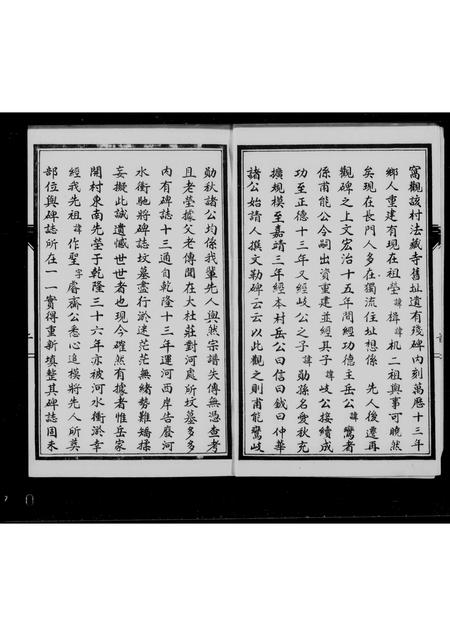 窩觀該村法藏寺舊址遺有殘碑內刻萬歷十三年
鄉人重建有現在祖瑩諱楫諱机二祖興事可曉然
矣現在長門人多在獨流住址想係 先人後遷再
觀碑之上文宏治十五年間經功德主岳公諱鸞者
係甫能公令嗣出資重建並經其子諱岐公接續成
功至正德十三年又經岐公之子諱勛孫名愛秋充
擴規模至嘉靖三年經本村岳公曰信曰鉞曰仲華
諸公始請人撰文勒碑云云以此觀之則甫能鸞岐
勛秋諸公均係我輩先人與然宗譜失傳無憑查考
且老瑩據父老傳聞在大社莊對河處所坟墓多多
內有碑誌十三通自乾隆十三年運河西岸告廢河
水衝馳將碑誌坟墓盡行淤迷茫茫無緒勢難矯揉
妄擬此誠遺憾世世者也現今確然有據者惟岳家
開村東南先瑩于乾隆三十六年亦被河水衝淤幸
經我先祖諱作聖字睿齋公悉心追模將先人所奠
部位與碑誌所在一一實得重新填整其碑誌固未